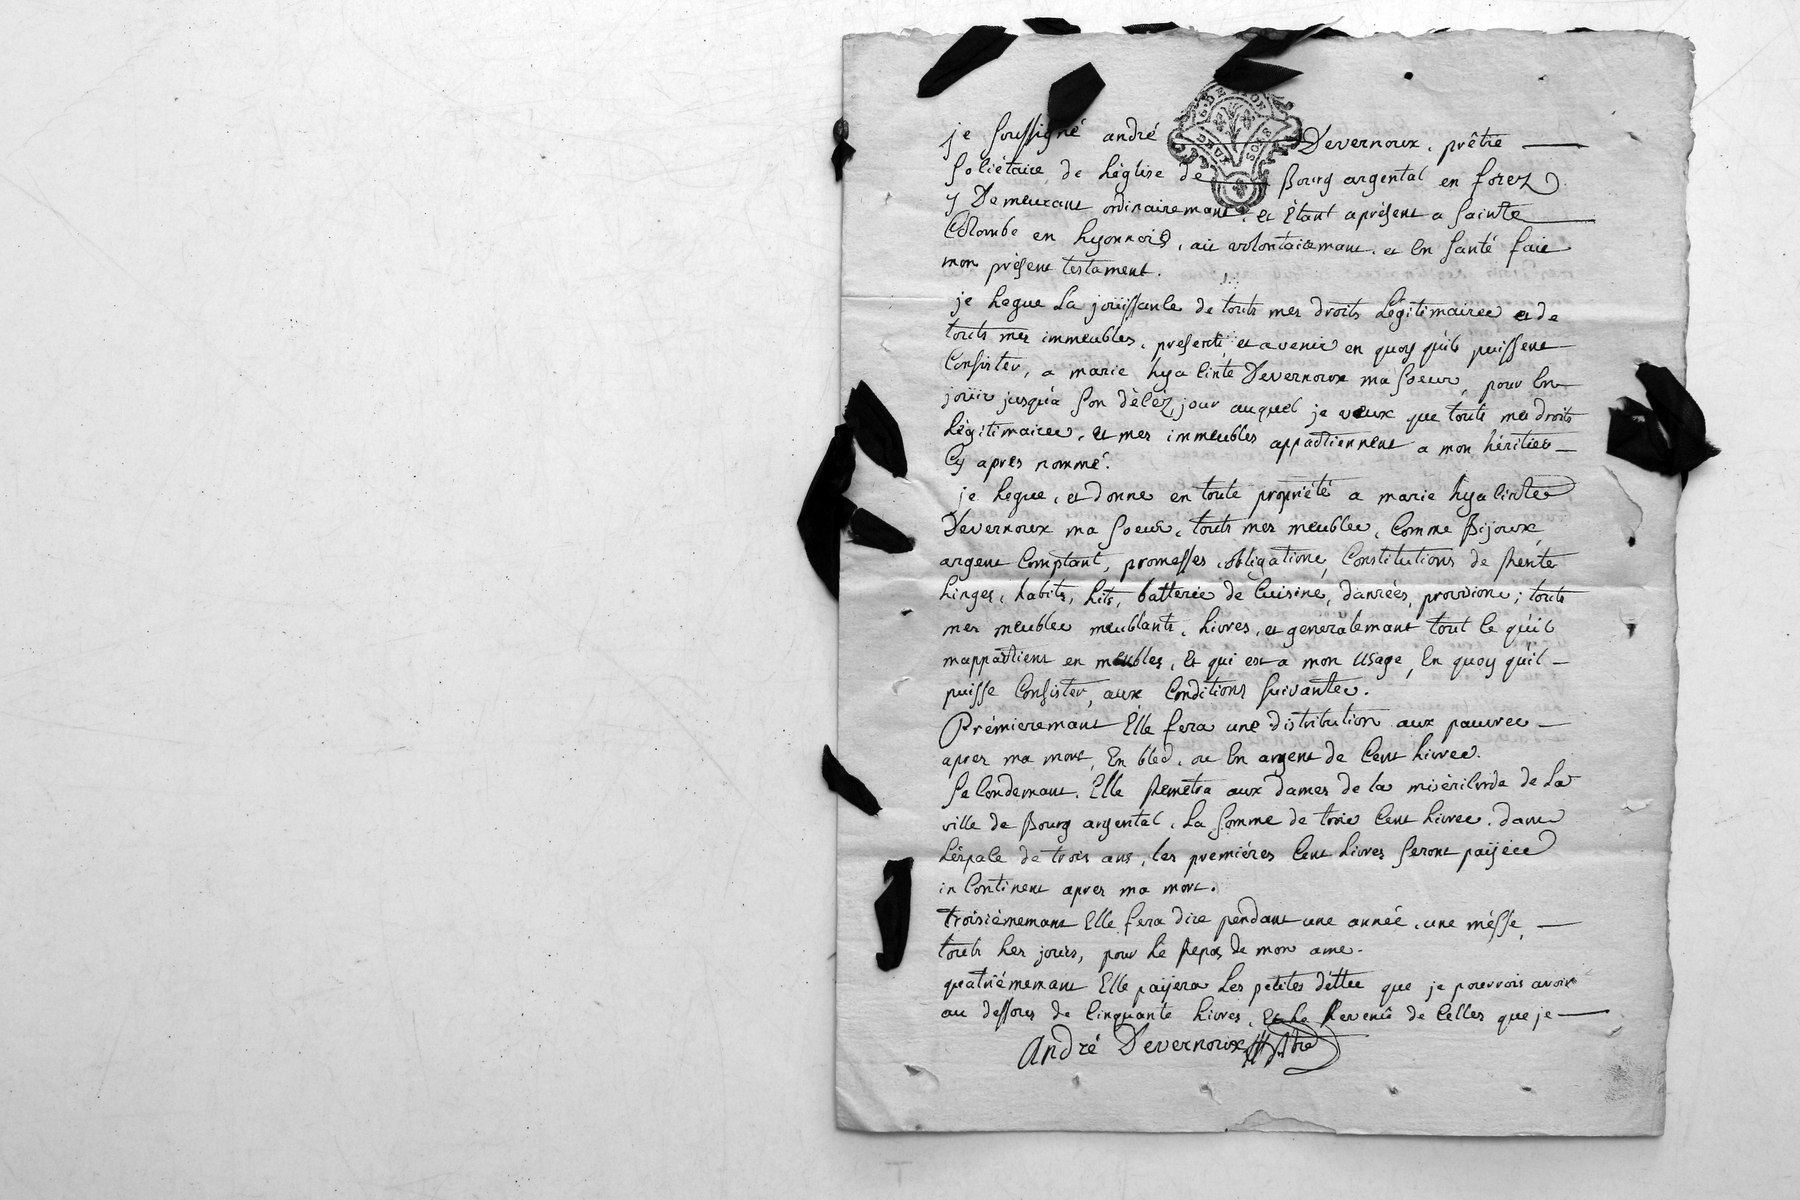 je soussigné andré Devernoux, prêtre
sosiétaire de Léglise de Bourg argental en forez
y Demeurant ordinairemant, et étant aprésent a Sainte
Colombe en Lyonnois, ait volontairemant, et en santé fait
mon présent testament.
je Legue La joüissance de touts mes droits Légitimaires et de
touts mes immeubles, presents et avenir en quoy qu'ils puissent
Consister, a marie hyacinte Devernoux ma soeur, pour en
joüir jusqu'a son décéz, jour auquel je veux que touts mes droits
Légitimaires, et mes immeubles appartiennent a mon héritier
Cy apres nommé.
je Legue, et donne en toute propriété a marie hyacinte
Devernoux ma soeur, touts mes meubles, Comme Bijoux,
argent Comptant, promesses, obligations, Constitutions de Rente
Linges, habits, Lits, batterie de Cuisine, danrées, provisions; touts
mes meubles meublants, Livres, et generalemant tout ce qu'il
mappartient en meubles, Et qui est a mon Usage, En quoy qu'il
puisse Consister, aux Conditions suivantes.
Prémieremant Elle fera une distribution aux pauvres
apres ma mort, En bled, ou En argent de Cent Livres.
seCondemant, Elle Remétra aux dames de la miséricorde de La
ville de Bourg argental, La somme de trois Cent Livres, dans
Léspace de trois ans, les premiéres Cent Livres seront païjées
inContinent apres ma mort.
troisiémemant Elle fera dire pendant une année, une mésse,
touts Les jours, pour Le Repos de mon ame.
quatriémemant Elle païjera Les petites déttes que je pourrois avoir
au dessous de Cinquante Livres, Et Le Revenû de Celles que je
André Devernoux ptre
DEUX SOLS